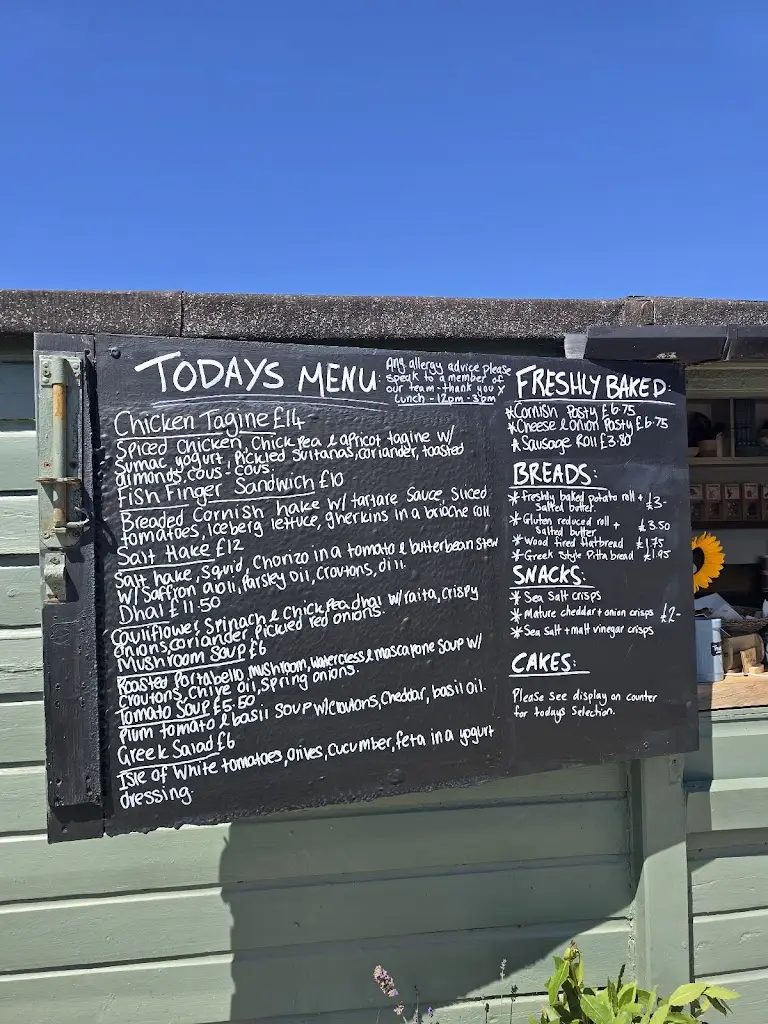 TODAYS MENU:
Any allergy advice please
speak to a member of
our team - thank you x
Lunch - 12pm - 3pm
Chicken Tagine £14
Spiced Chicken, Chick pea & apricot tagine w/
Sumac yogurt, Pickled Sultanas, coriander, toasted
almonds, cous-cous.
Fish Finger Sandwich £10
Breaded Cornish hake w/ tartare Sauce, Sliced
tomatoes, Iceberg lettuce, gherkins in a brioche roll
Salt Hake £12
Salt hake, Squid, Chorizo in a tomato & butterbean Stew
w/ Saffron aioli, Parsley Oil, Croutons, dill.
Dhal £11.50
Cauliflower, Spinach & Chick Pea dhal w/ raita, crispy
onions, coriander, pickled red onions.
Mushroom Soup £6
Roasted Portabello, mushroom, watercress & mascapone Soup w/
Croutons, Chive oil, Spring onions.
Tomato Soup £5.50
Plum tomato & basil Soup w/ Croutons, Cheddar, basil oil.
Greek Salad £6
Isle of White tomatoes, Olives, Cucumber, feta in a yogurt
dressing
FRESHLY BAKED:
* Cornish Pasty £6.75
* Cheese & onion Pasty £6.75
* Sausage Roll £3.80
BREADS:
* Freshly baked potato roll + £3-
Salted butter.
* Gluten reduced roll + £3.50
Salted butter
* Wood fired flatbread £1.75
* Greek Style Pitta bread £1.95
SNACKS:
* Sea Salt crisps
* Mature cheddar + onion crisps £2-
* Sea Salt + malt vinegar crisps
CAKES:
Please see display on counter
for todays Selection.